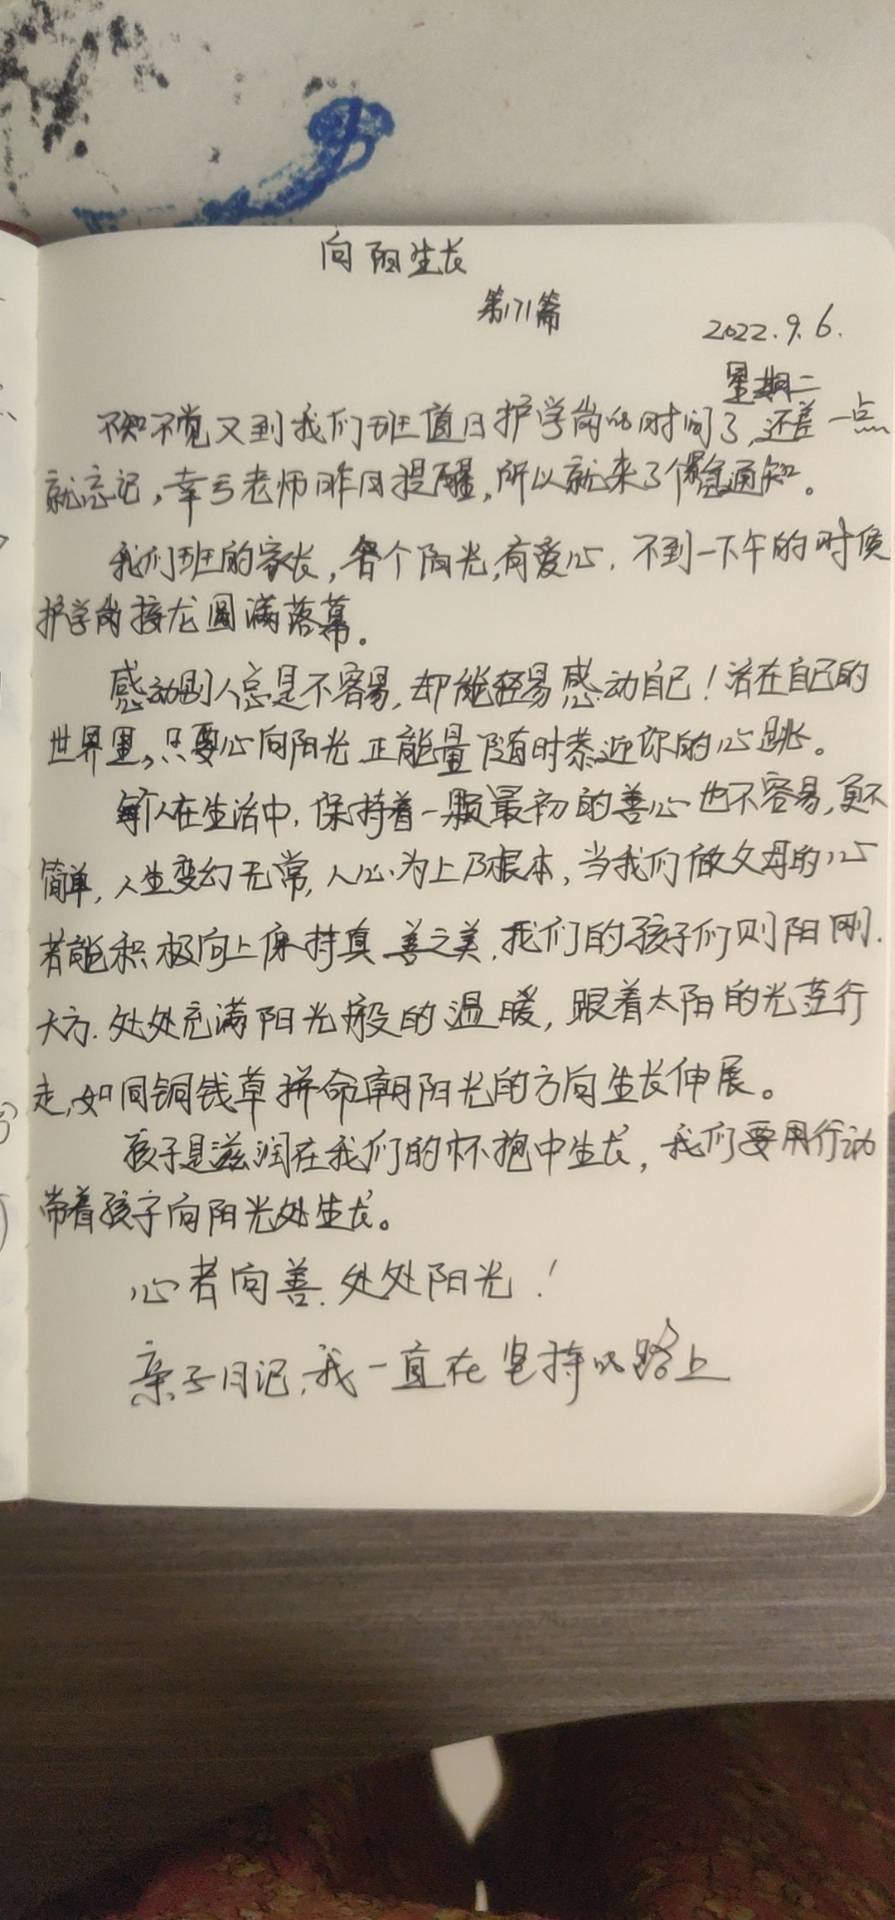 向阳生长
第171篇
2022.9.6.
星期二
不知不觉又到我们班值日护学岗的时间了,还差一点
就忘记,幸亏老师昨日提醒,所以就来了个紧急通知。
我们班的家长,各个阳光,有爱心.不到一下午的时候
护学岗接龙圆满落幕。
感动别人总是不容易,却能轻易感动自己!活在自己的
世界里,只要心向阳光 正能量随时靠近你的心跳。
每个人在生活中,保持着一颗最初的善心也不容易,更不
简单,人生变幻无常,人心为上乃根本,当我们做父母的心
若能积极向上保持真善之美.我们的孩子们则阳刚.
大方.处处充满阳光般的温暖,跟着太阳的光芒行
走,如同铜钱草拼命朝阳光的方向生长伸展。
孩子是滋润在我们的怀抱中生长,我们要用行动
带着孩子向阳光处生长。
心若向善.处处阳光!
亲子日记,我一直在坚持的路上